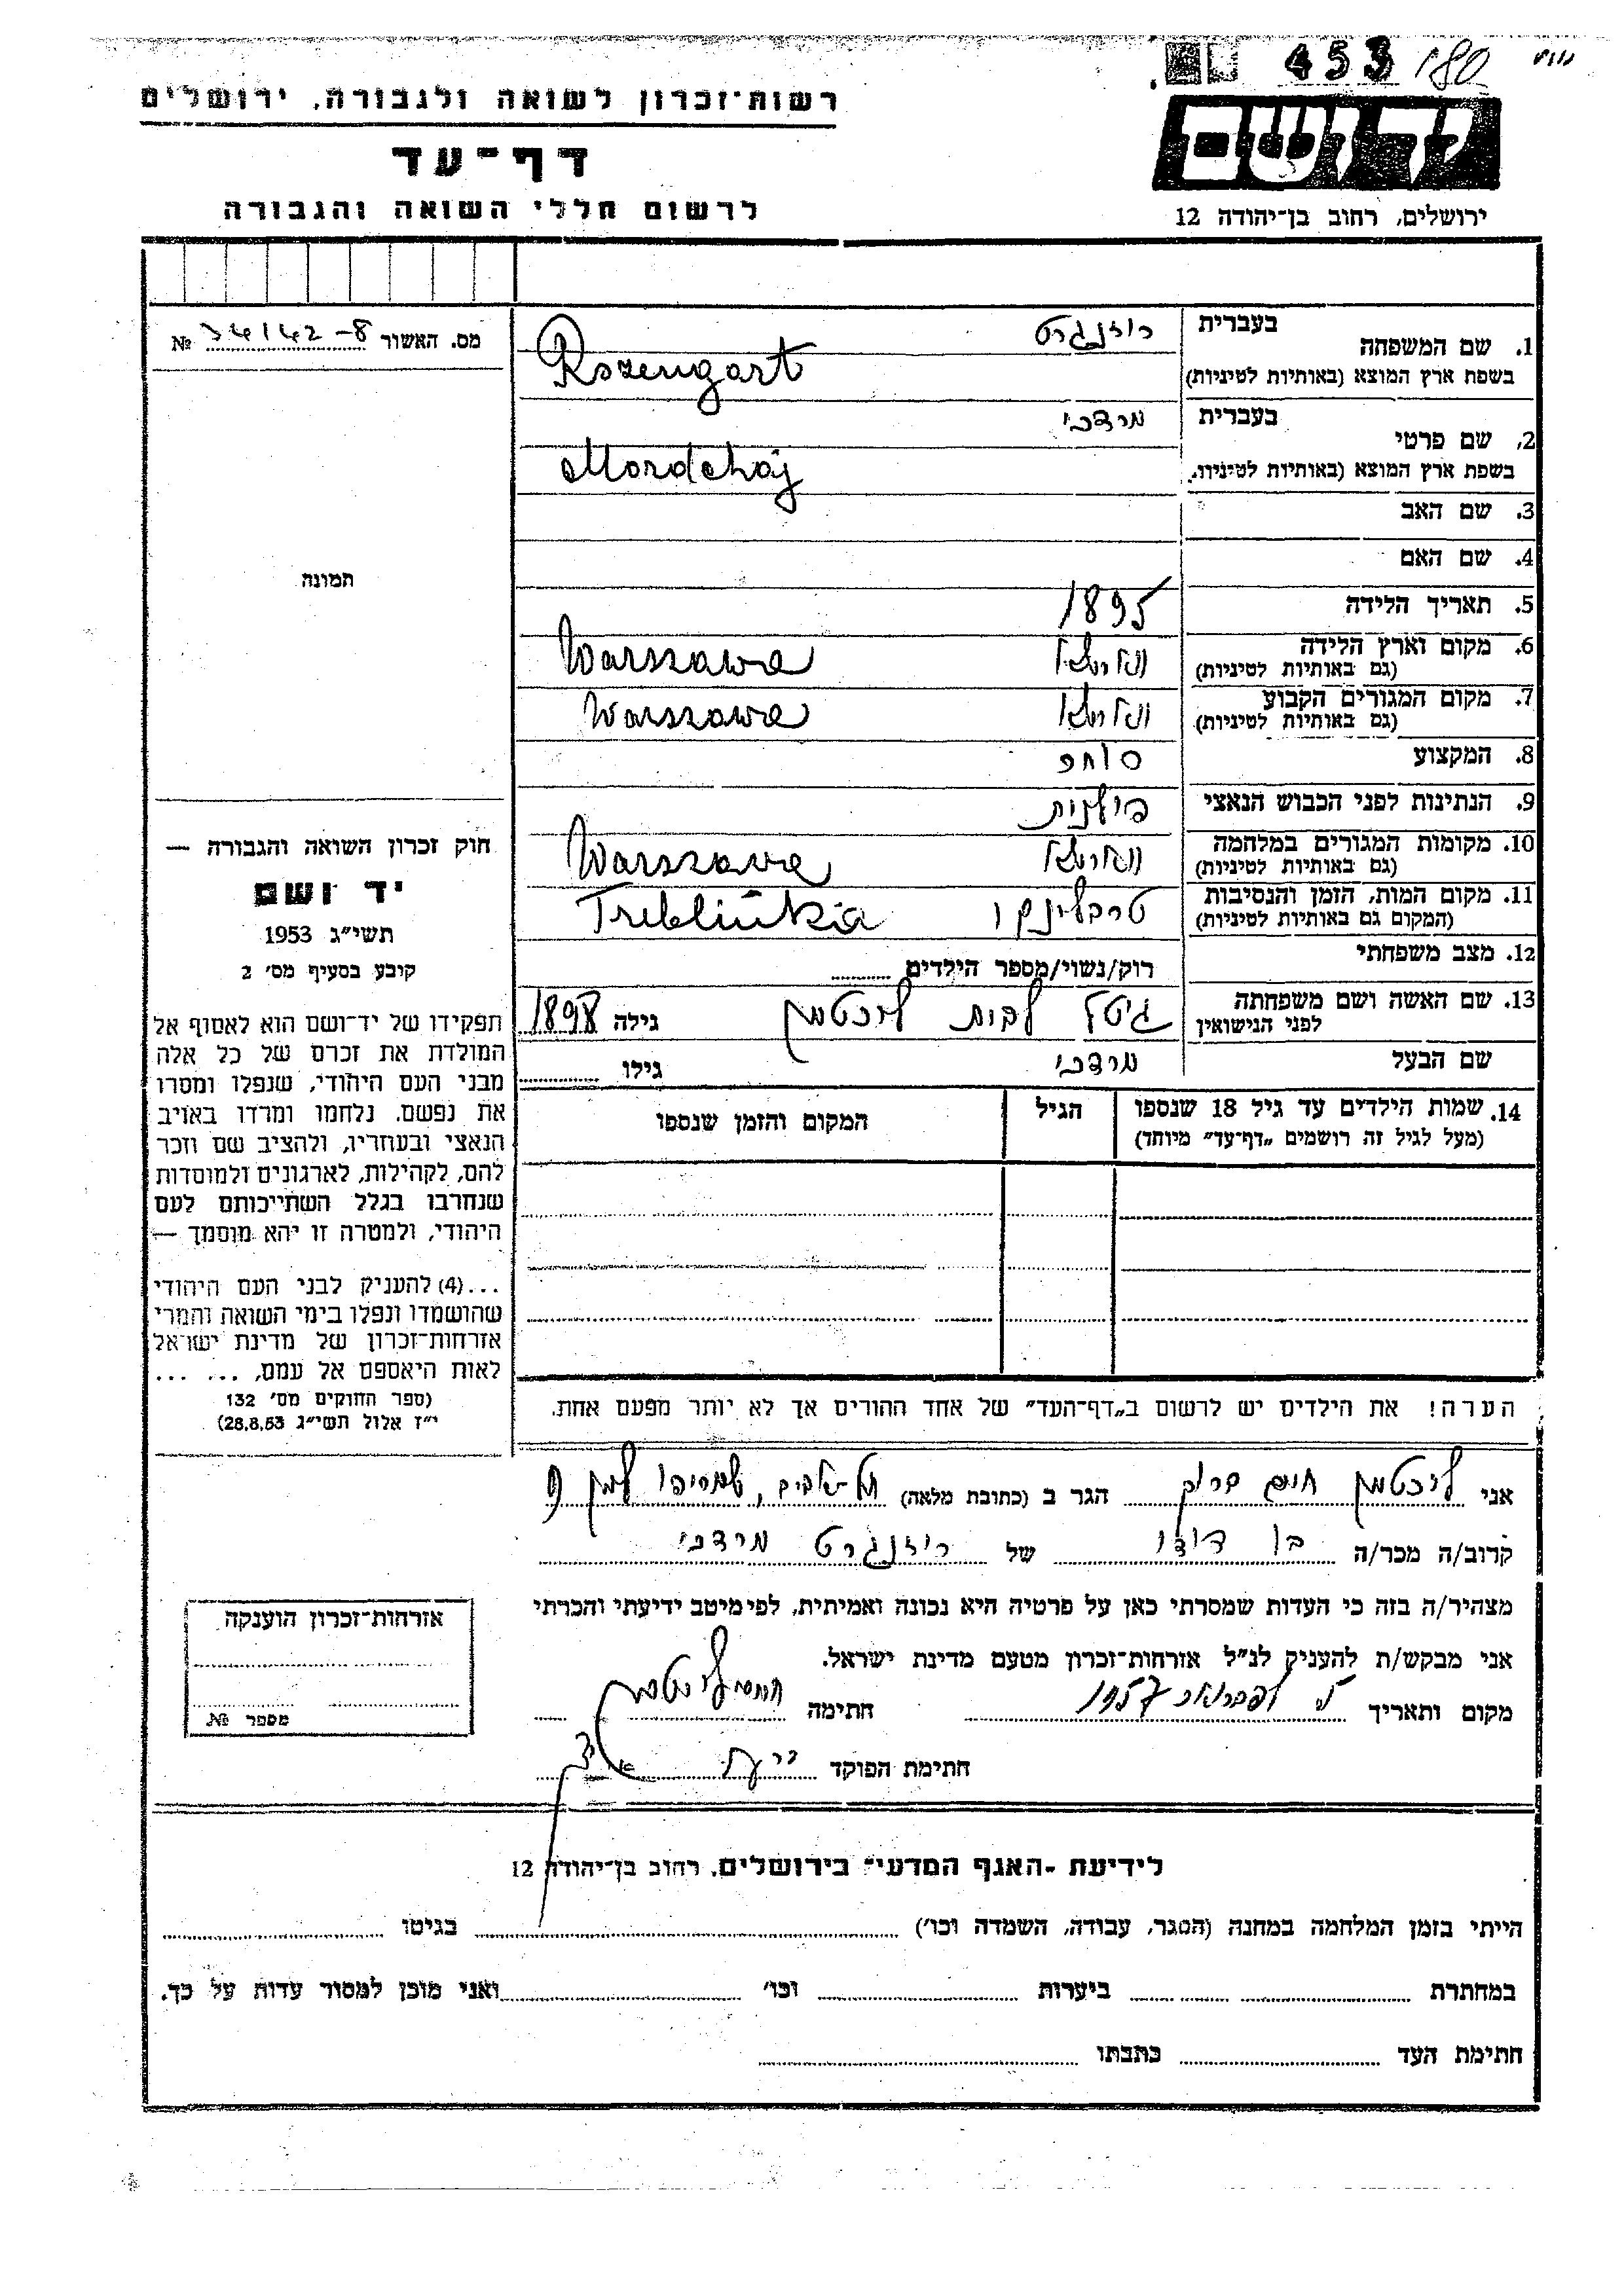 453 180
רשות־זכרון לשואה ולגבורה, ירושלים
דף־עד
לרשום חללי השואה והגבורה
יד ושם
ירושלים, רחוב בן־יהודה 12
1. שם המשפחה
בעברית רוזנגרט
בשפת ארץ המוצא (באותיות לטיניות) Rozengart
2. שם פרטי
בעברית מרדכי
בשפת ארץ המוצא (באותיות לטיניות). Mordchaj
3. שם האב
4. שם האם
5. תאריך הלידה 1895
6. מקום וארץ הלידה
(גם באותיות לטיניות) Warszawa
7. מקום המגורים הקבוע
(גם באותיות לטיניות) Warszawa
8. המקצוע סוחר
9. הנתינות לפני הכבוש הנאצי פולנית
10. מקומות המגורים במלחמה
(גם באותיות לטיניות) Warszawa
11. מקום המות, הזמן והנסיבות טרבלינקי
(המקום גם באותיות לטיניות) Treblinka
12. מצב משפחתי רוק/נשוי/מספר הילדים
13. שם האשה ושם משפחתה
לפני הנישואין לבית ליכטמן גילה 1898
שם הבעל מרדכי גילו
14. שמות הילדים עד גיל 18 שנספו הגיל המקום והזמן שנספו
(מעל לגיל זה רושמים „דף־עד״ מיוחד)
הערה! את הילדים יש לרשום ב„דף־העד״ של אחד ההורים אך לא יותר מפעם אחת.
מס. האשור 34142-8 №
תמונה
חוק זכרון השואה והגבורה —
יד ושם
תשי״ג 1953
קובע בסעיף מס׳ 2
תפקידו של יד־ושם הוא לאסוף אל
המולדת את זכרם של כל אלה
מבני העם היהודי, שנפלו ומסרו
את נפשם, נלחמו ומרדו באויב
הנאצי ובעוזריו, ולהציב שם וזכר
להם, לקהילות, לארגונים ולמוסדות
שנחרבו בגלל השתייכותם לעם
היהודי, ולמטרה זו יהא מוסמך —
...(4) להעניק לבני העם היהודי
שהושמדו ונפלו בימי השואה והמרי
אזרחות־זכרון של מדינת ישראל
לאות היאספם אל עמם, ... ...
(ספר החוקים מס׳ 132
י״ז אלול תשי״ג 28.8.53)
אני ליכטמן חיים ברוך הגר ב (כתובת מלאה) תל־אביב,
קרוב/ה מכר/ה בן דודו של רוזנגרט מרדכי
מצהיר/ה בזה כי העדות שמסרתי כאן על פרטיה היא נכונה ואמיתית, לפי מיטב ידיעתי והכרתי
אני מבקש/ת להעניק לנ״ל אזרחות־זכרון מטעם מדינת ישראל.
מקום ותאריך לפברואר 1957 חתימה
חתימת הפוקד
אזרחות־זכרון הוענקה
מספר №
לידיעת „האגף המדעי״ בירושלים, רחוב בן־יהודה 12
הייתי בזמן המלחמה במחנה (הסגר, עבודה, השמדה וכו׳) בגיטו
במחתרת ביערות וכו׳ ואני מוכן למסור עדות על כך.
חתימת העד כתבתו